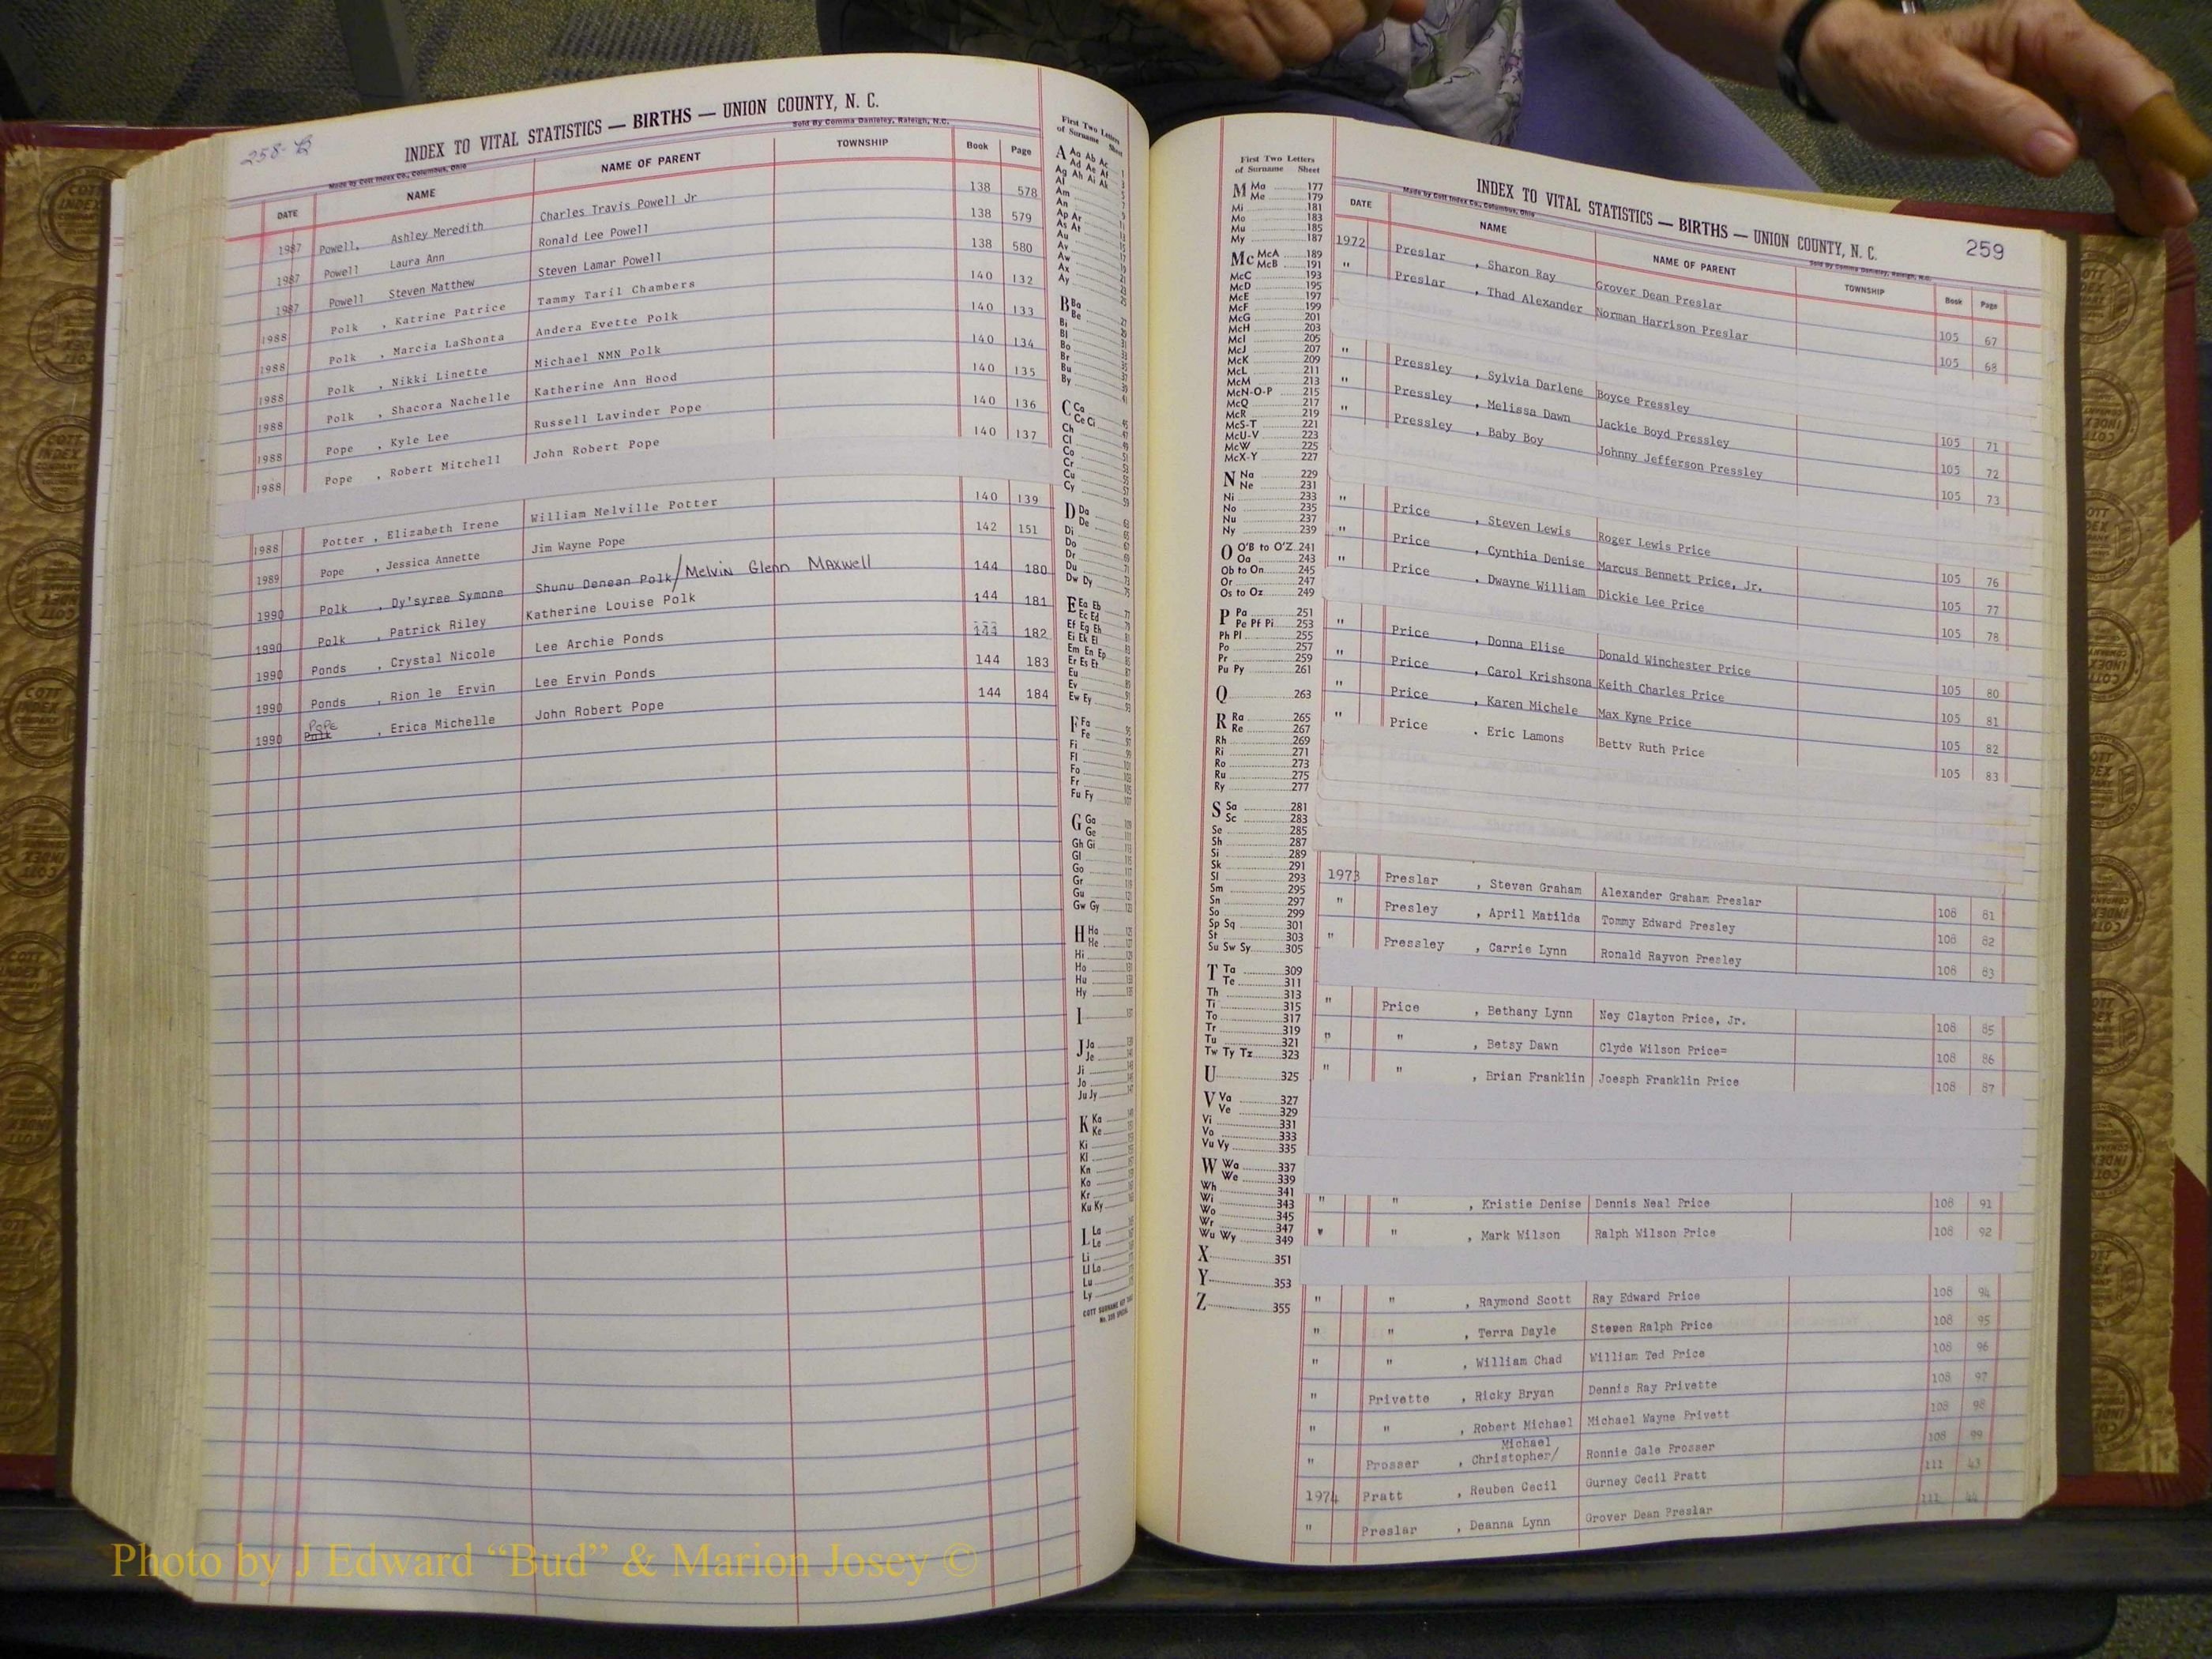 258-B
INDEX TO VITAL STATISTICS — BIRTHS — UNION COUNTY, N. C.
Made by Cott Index Co., Columbus, Ohio
Sold By Comma Danieley, Raleigh, N.C.
DATE NAME NAME OF PARENT TOWNSHIP Book Page
1987 Powell, Ashley Meredith Charles Travis Powell Jr 138 578
1987 Powell Laura Ann Ronald Lee Powell 138 579
1987 Powell Steven Matthew Steven Lamar Powell 138 580
1988 Polk , Katrine Patrice Tammy Taril Chambers 140 132
1988 Polk , Marcia LaShonta Andera Evette Polk 140 133
1988 Polk , Nikki Linette Michael NMN Polk 140 134
1988 Polk , Shacora Nachelle Katherine Ann Hood 140 135
1988 Pope , Kyle Lee Russell Lavinder Pope 140 136
1988 Pope , Robert Mitchell John Robert Pope 140 137
1988 Potter , Elizabeth Irene William Melville Potter 140 139
1989 Pope , Jessica Annette Jim Wayne Pope 142 151
1990 Polk , Dy'syree Symone Shunu Denean Polk/Melvin Glenn Maxwell 144 180
1990 Polk , Patrick Riley Katherine Louise Polk 144 181
1990 Ponds , Crystal Nicole Lee Archie Ponds 144 182
1990 Ponds , Rion le Ervin Lee Ervin Ponds 144 183
Pope
1990 Polk , Erica Michelle John Robert Pope 144 184
First Two Letters
of Surname Sheet
A Aa Ab Ac
Ad Ae Af
Ag Ah Ai Ak
Al
Am
An
Ap Ar
As At
Au
Av
Aw
Ax
Ay
B Ba
Be
Bi
Bl
Bo
Br
Bu
By
C Ca
Ce Ci
Ch
Cl
Co
Cr
Cu
Cy
D Da
De
Di
Do
Dr
Du
Dw Dy
E Ea Eb
Ec Ed
Ef Eg Eh
Ei Ek El
Em En Ep
Er Es Et
Eu
Ev
Ew Ey
F Fa
Fe
Fi
Fl
Fo
Fr
Fu Fy
G Ga
Ge
Gh Gi
Gl
Go
Gr
Gu
Gw Gy
H Ha
He
Hi
Ho
Hu
Hy
I
J Ja
Je
Ji
Jo
Ju Jy
K Ka
Ke
Ki
Kl
Kn
Ko
Kr
Ku Ky
L La
Le
Li
Ll Lo
Lu
Ly
First Two Letters
of Surname Sheet
M Ma 177
Me 179
Mi 181
Mo 183
Mu 185
My 187
Mc McA 189
McB 191
McC 193
McD 195
McE 197
McF 199
McG 201
McH 203
McI 205
McJ 207
McK 209
McL 211
McM 213
McN-O-P 215
McQ 217
McR 219
McS-T 221
McU-V 223
McW 225
McX-Y 227
N Na 229
Ne 231
Ni 233
No 235
Nu 237
Ny 239
O O'B to O'Z 241
Oa 243
Ob to On 245
Or 247
Os to Oz 249
P Pa 251
Pe Pf Pi 253
Ph Pl 255
Po 257
Pr 259
Pu Py 261
Q 263
R Ra 265
Re 267
Rh 269
Ri 271
Ro 273
Ru 275
Ry 277
S Sa 281
Sc 283
Se 285
Sh 287
Si 289
Sk 291
Sl 293
Sm 295
Sn 297
So 299
Sp Sq 301
St 303
Su Sw Sy 305
T Ta 309
Te 311
Th 313
Ti 315
To 317
Tr 319
Tu 321
Tw Ty Tz 323
U 325
V Va 327
Ve 329
Vi 331
Vo 333
Vu Vy 335
W Wa 337
We 339
Wh 341
Wi 343
Wo 345
Wr 347
Wu Wy 349
X 351
Y 353
Z 355
INDEX TO VITAL STATISTICS — BIRTHS — UNION COUNTY, N. C. 259
Made by Cott Index Co., Columbus, Ohio
Sold By Comma Danieley, Raleigh, N.C.
DATE NAME NAME OF PARENT TOWNSHIP Book Page
1972 Preslar , Sharon Ray Grover Dean Preslar 105 67
" Preslar , Thad Alexander Norman Harrison Preslar 105 68
" Pressley , Sylvia Darlene Boyce Pressley 105 71
" Pressley , Melissa Dawn Jackie Boyd Pressley 105 72
" Pressley , Baby Boy Johnny Jefferson Pressley 105 73
" Price , Steven Lewis Roger Lewis Price 105 76
" Price , Cynthia Denise Marcus Bennett Price, Jr. 105 77
" Price , Dwayne William Dickie Lee Price 105 78
" Price , Donna Elise Donald Winchester Price 105 80
" Price , Carol Krishsona Keith Charles Price 105 81
" Price , Karen Michele Max Kyne Price 105 82
" Price , Eric Lamons Betty Ruth Price 105 83
1973 Preslar , Steven Graham Alexander Graham Preslar 108 81
" Presley , April Matilda Tommy Edward Presley 108 82
" Pressley , Carrie Lynn Ronald Rayvon Presley 108 83
" Price , Bethany Lynn Ney Clayton Price, Jr. 108 85
" " , Betsy Dawn Clyde Wilson Price= 108 86
" " , Brian Franklin Joesph Franklin Price 108 87
" " , Kristie Denise Dennis Neal Price 108 91
" " , Mark Wilson Ralph Wilson Price 108 92
" " , Raymond Scott Ray Edward Price 108 94
" " , Terra Dayle Steven Ralph Price 108 95
" " , William Chad William Ted Price 108 96
" Privette , Ricky Bryan Dennis Ray Privette 108 97
" " , Robert Michael Michael Wayne Privett 108 98
Michael
" Prosser , Christopher/ Ronnie Gale Prosser 108 99
1974 Pratt , Reuben Cecil Gurney Cecil Pratt 111 43
" Preslar , Deanna Lynn Grover Dean Preslar 111 44
Photo by J Edward “Bud” & Marion Josey ©